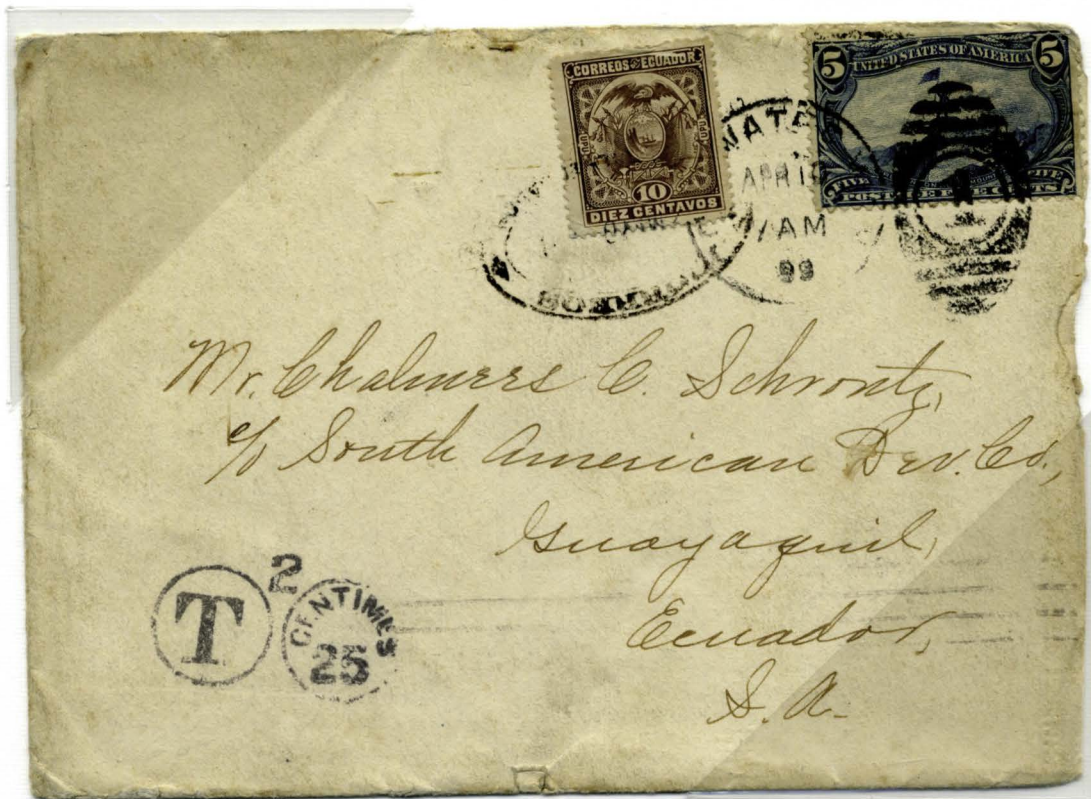 CORREOS DEL ECUADOR
UPU
UPU
10
DIEZ CENTAVOS
5 UNITED STATES OF AMERICA 5
FIVE
POSTAGE FIVE CENTS
APR 10
AM
99
1
Mr. Chalmers C. Schrontz,
c/o South American Dev. Co.,
Guayaquil,
Ecuador,
S. A.
T
2
CENTIMES
25